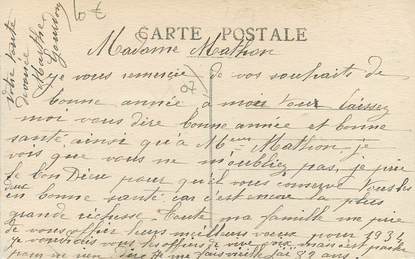 CARTE POSTALE
Madame Mathon
je vous remercie de vos souhaits de
bonne année à mon tour laissez
moi vous dire bonne année et bonne
santé, ainsi qu'à Mr Mathon, je
vois que vous ne m'oubliez pas, je prie
le bon Dieu pour qu'il vous conserve tous les
deux
en bonne santé car c'est encore la plus
grande richesse. toute ma famille me prie
de vous offrir leurs meilleurs vœux pour 1934
je voudrais vous les offrir de vive voix mais c'est pas
dire je me fais vieille j'ai 82 ans!
votre toute
dévouée
Marthe